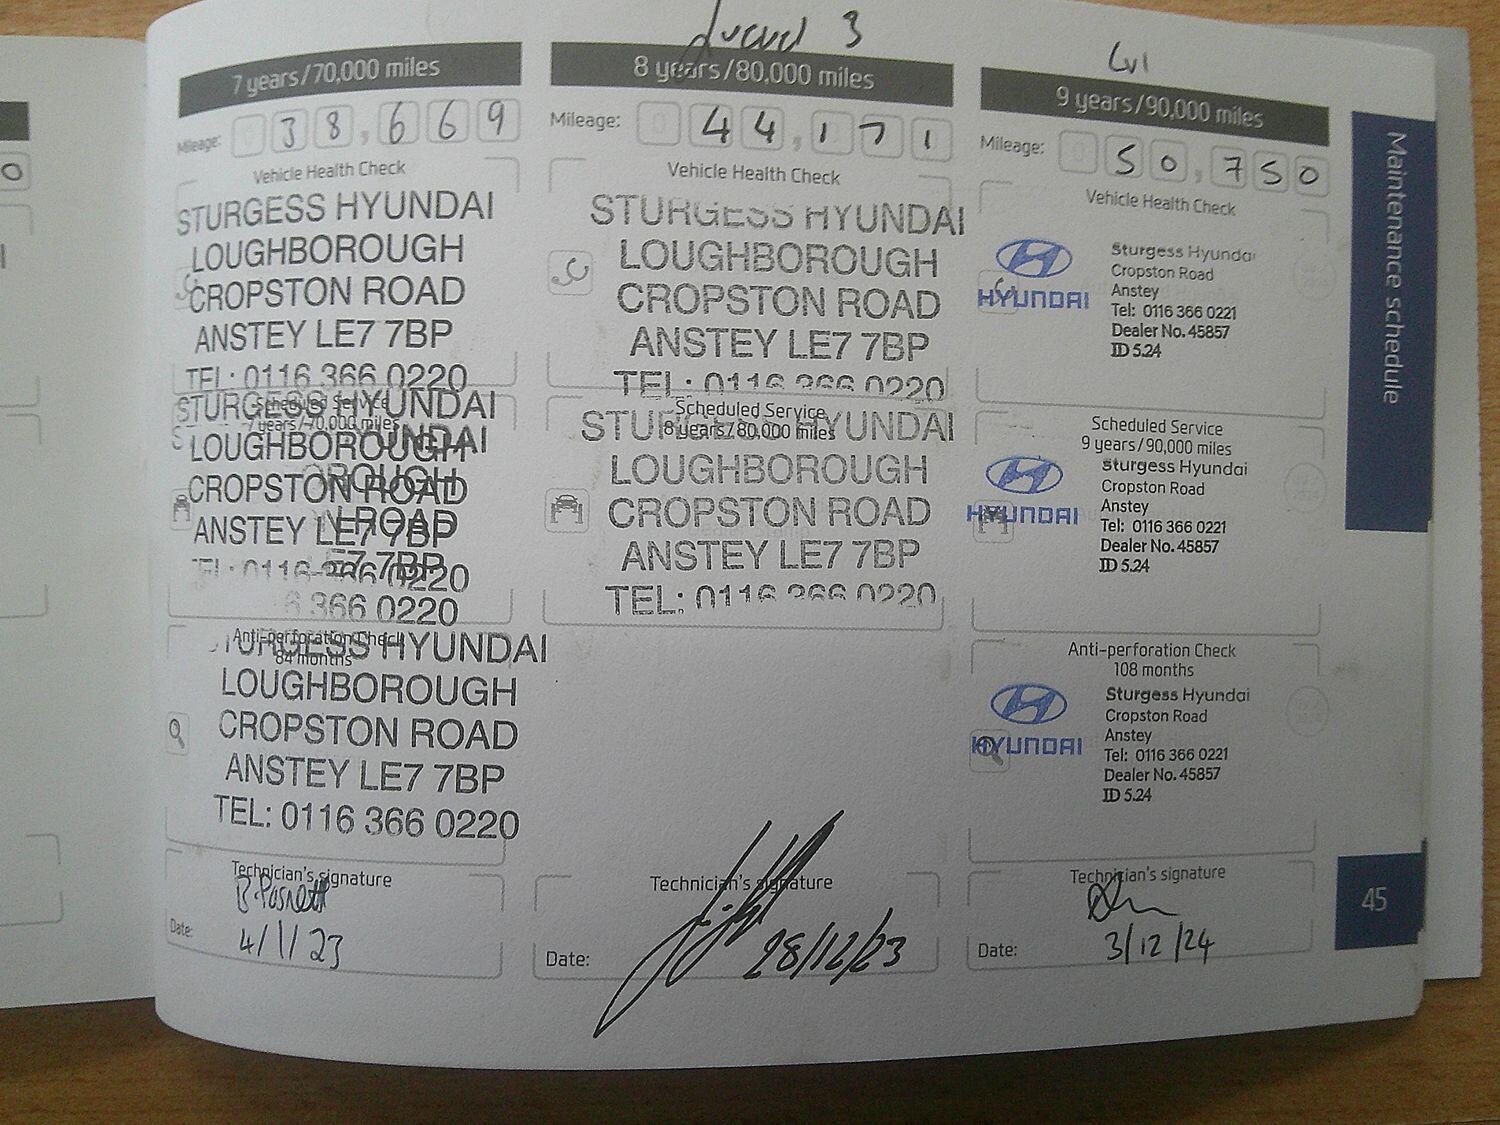 0
7 years/70,000 miles
Mileage: 38,669
Vehicle Health Check
STURGESS HYUNDAI
LOUGHBOROUGH
CROPSTON ROAD
ANSTEY LE7 7BP
TEL: 0116 366 0220
Scheduled Service
7 years/70,000 miles
STURGESS HYUNDAI
LOUGHBOROUGH
CROPSTON ROAD
ANSTEY LE7 7BP
TEL: 0116 366 0220
366 0220
Anti-perforation Check
84 months
STURGESS HYUNDAI
LOUGHBOROUGH
CROPSTON ROAD
ANSTEY LE7 7BP
TEL: 0116 366 0220
Technician's signature
Date: 4/1/23
3
8 years/80,000 miles
Mileage: 44,171
Vehicle Health Check
STURGESS HYUNDAI
LOUGHBOROUGH
CROPSTON ROAD
ANSTEY LE7 7BP
TEL: 0116 366 0220
Scheduled Service
8 years/80,000 miles
STURGESS HYUNDAI
LOUGHBOROUGH
CROPSTON ROAD
ANSTEY LE7 7BP
TEL: 0116 366 0220
Technician's signature
Date: 28/12/23
Lvl
9 years/90,000 miles
Mileage: 50,750
Vehicle Health Check
HYUNDAI
Sturgess Hyundai
Cropston Road
Anstey
Tel: 0116 366 0221
Dealer No. 45857
ID 5.24
Scheduled Service
9 years/90,000 miles
HYUNDAI
Sturgess Hyundai
Cropston Road
Anstey
Tel: 0116 366 0221
Dealer No. 45857
ID 5.24
Anti-perforation Check
108 months
HYUNDAI
Sturgess Hyundai
Cropston Road
Anstey
Tel: 0116 366 0221
Dealer No. 45857
ID 5.24
Technician's signature
Date: 3/12/24
Maintenance schedule
45